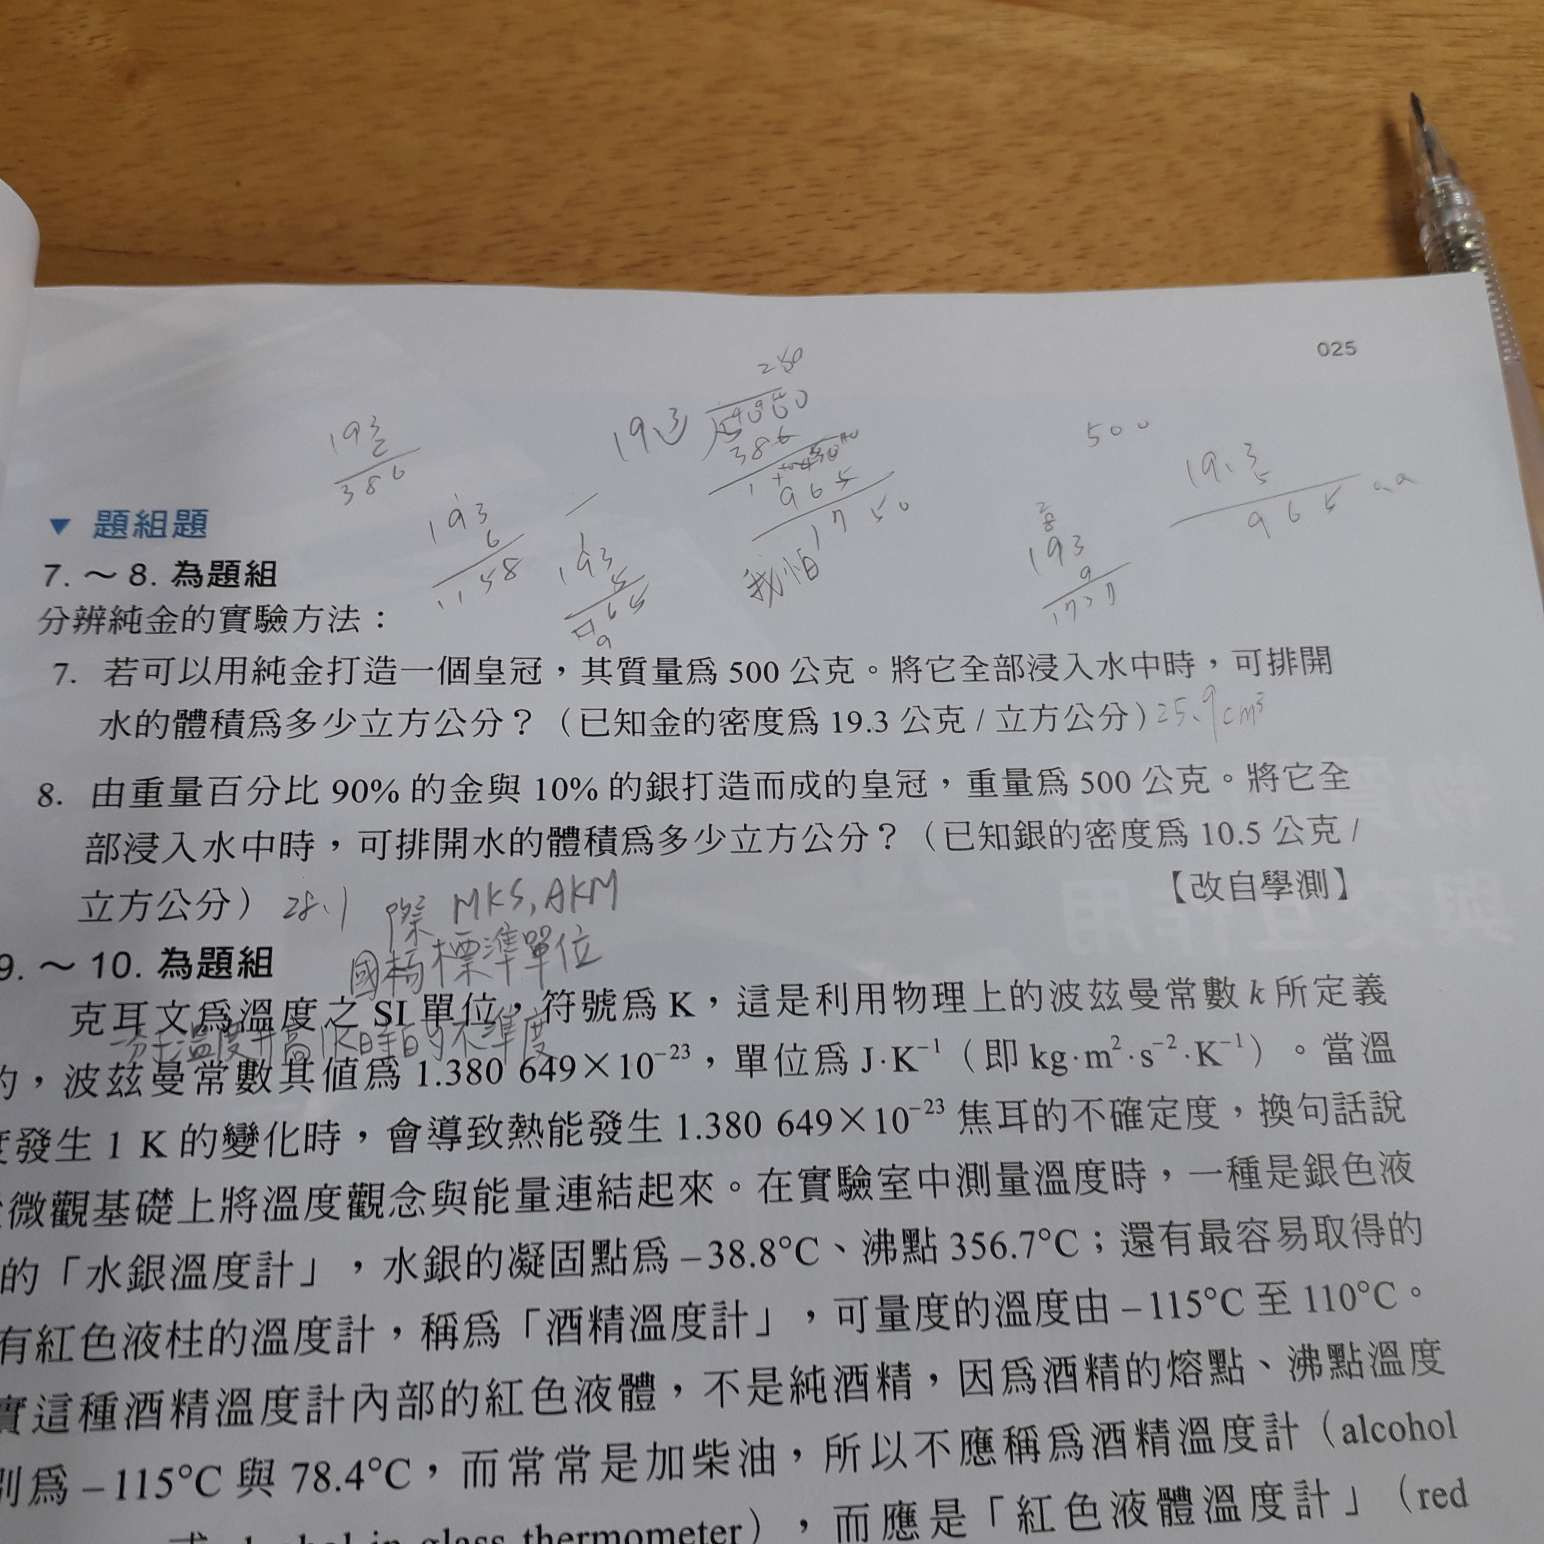 025
280
500
193
2
386
193
193
6
1158
193
5
386
965
1750
我怕
193
9
1737
19.3
5
965
▼ 題組題
7. ～ 8. 為題組
分辨純金的實驗方法：
7. 若可以用純金打造一個皇冠，其質量為 500 公克。將它全部浸入水中時，可排開
水的體積為多少立方公分？（已知金的密度為 19.3 公克 / 立方公分）25.9cm³
8. 由重量百分比 90% 的金與 10% 的銀打造而成的皇冠，重量為 500 公克。將它全
部浸入水中時，可排開水的體積為多少立方公分？（已知銀的密度為 10.5 公克 /
立方公分）28.1
【改自學測】
際 MKS, AKM
國標標準單位
9. ～ 10. 為題組
克耳文為溫度之 SI 單位，符號為 K，這是利用物理上的波茲曼常數 k 所定義
的，波茲曼常數其值為 1.380 649×10⁻²³，單位為 J·K⁻¹（即 kg·m²·s⁻²·K⁻¹）。當溫
度發生 1 K 的變化時，會導致熱能發生 1.380 649×10⁻²³ 焦耳的不確定度，換句話說
微觀基礎上將溫度觀念與能量連結起來。在實驗室中測量溫度時，一種是銀色液
的「水銀溫度計」，水銀的凝固點為 –38.8°C、沸點 356.7°C；還有最容易取得的
有紅色液柱的溫度計，稱為「酒精溫度計」，可量度的溫度由 –115°C 至 110°C。
實這種酒精溫度計內部的紅色液體，不是純酒精，因為酒精的熔點、沸點溫度
別為 –115°C 與 78.4°C，而常常是加柴油，所以不應稱為酒精溫度計（alcohol
thermometer），而應是「紅色液體溫度計」（red